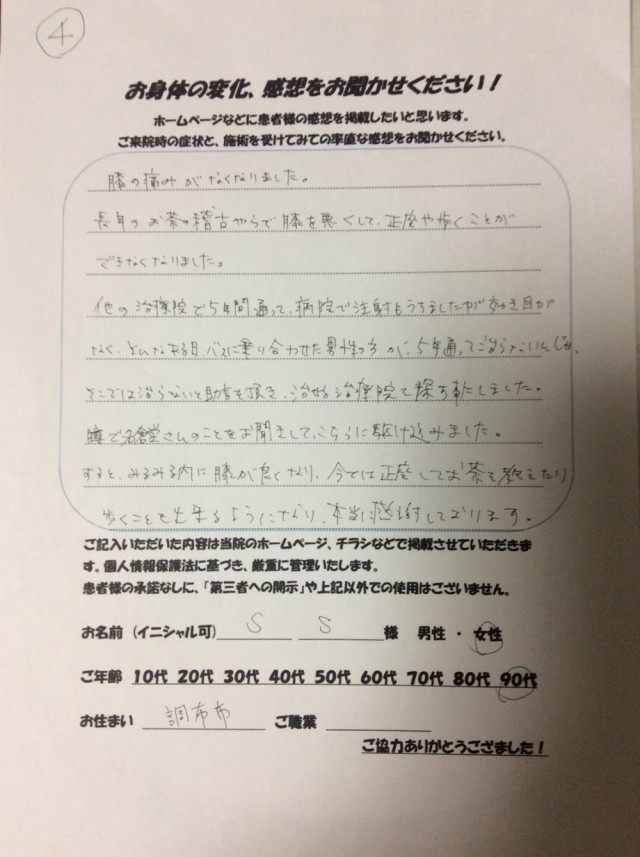 4
お身体の変化、感想をお聞かせください！
ホームページなどに患者様の感想を掲載したいと思います。
ご来院時の症状と、施術を受けてみての率直な感想をお聞かせください。
膝の痛みがなくなりました。
長年のお茶の稽古やらで膝を悪くして、正座や歩くことが
できなくなりました。
他の治療院で5年間通って、病院で注射もうちましたが効き目が
なく、そんなある日、バスに乗り合わせた男性の方が、5年通って治らないんじゃ、
そこでは治らないと助言を頂き、治せる治療院を探す事にしました。
噂で名倉堂さんのことをお聞きして、こちらに駆け込みました。
すると、みるみる内に膝が良くなり、今では正座してお茶を教えたり
歩くことも出来るようになり、本当に感謝しております。
ご記入いただいた内容は当院のホームページ、チラシなどで掲載させていただきま
す。個人情報保護法に基づき、厳重に管理いたします。
患者様の承諾なしに、「第三者への開示」や上記以外での使用はございません。
お名前（イニシャル可） S S 様 男性 ・ 女性
ご年齢 10代 20代 30代 40代 50代 60代 70代 80代 90代
お住まい 調布市 ご職業
ご協力ありがとうござました！